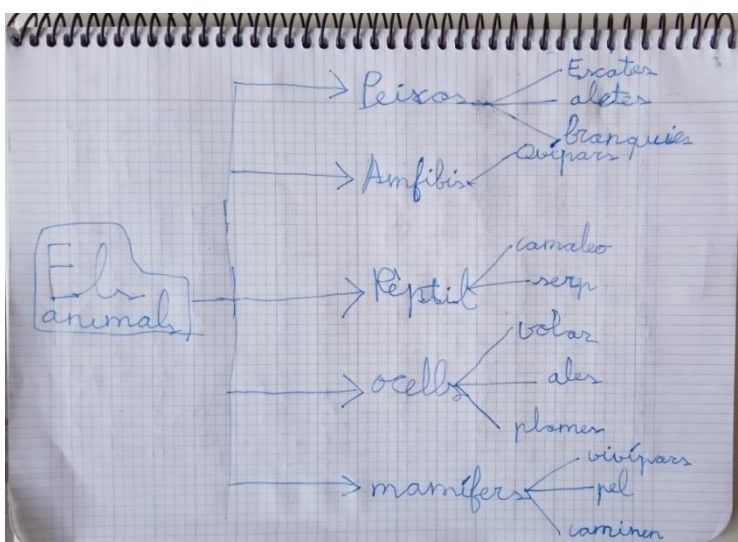 Els
animals
Peixos
Escates
aletes
branquies
Amfibis
Ovípars
Rèptil
camaleo
serp
ocells
volar
ales
plomes
mamífers
vivípars
pel
caminen